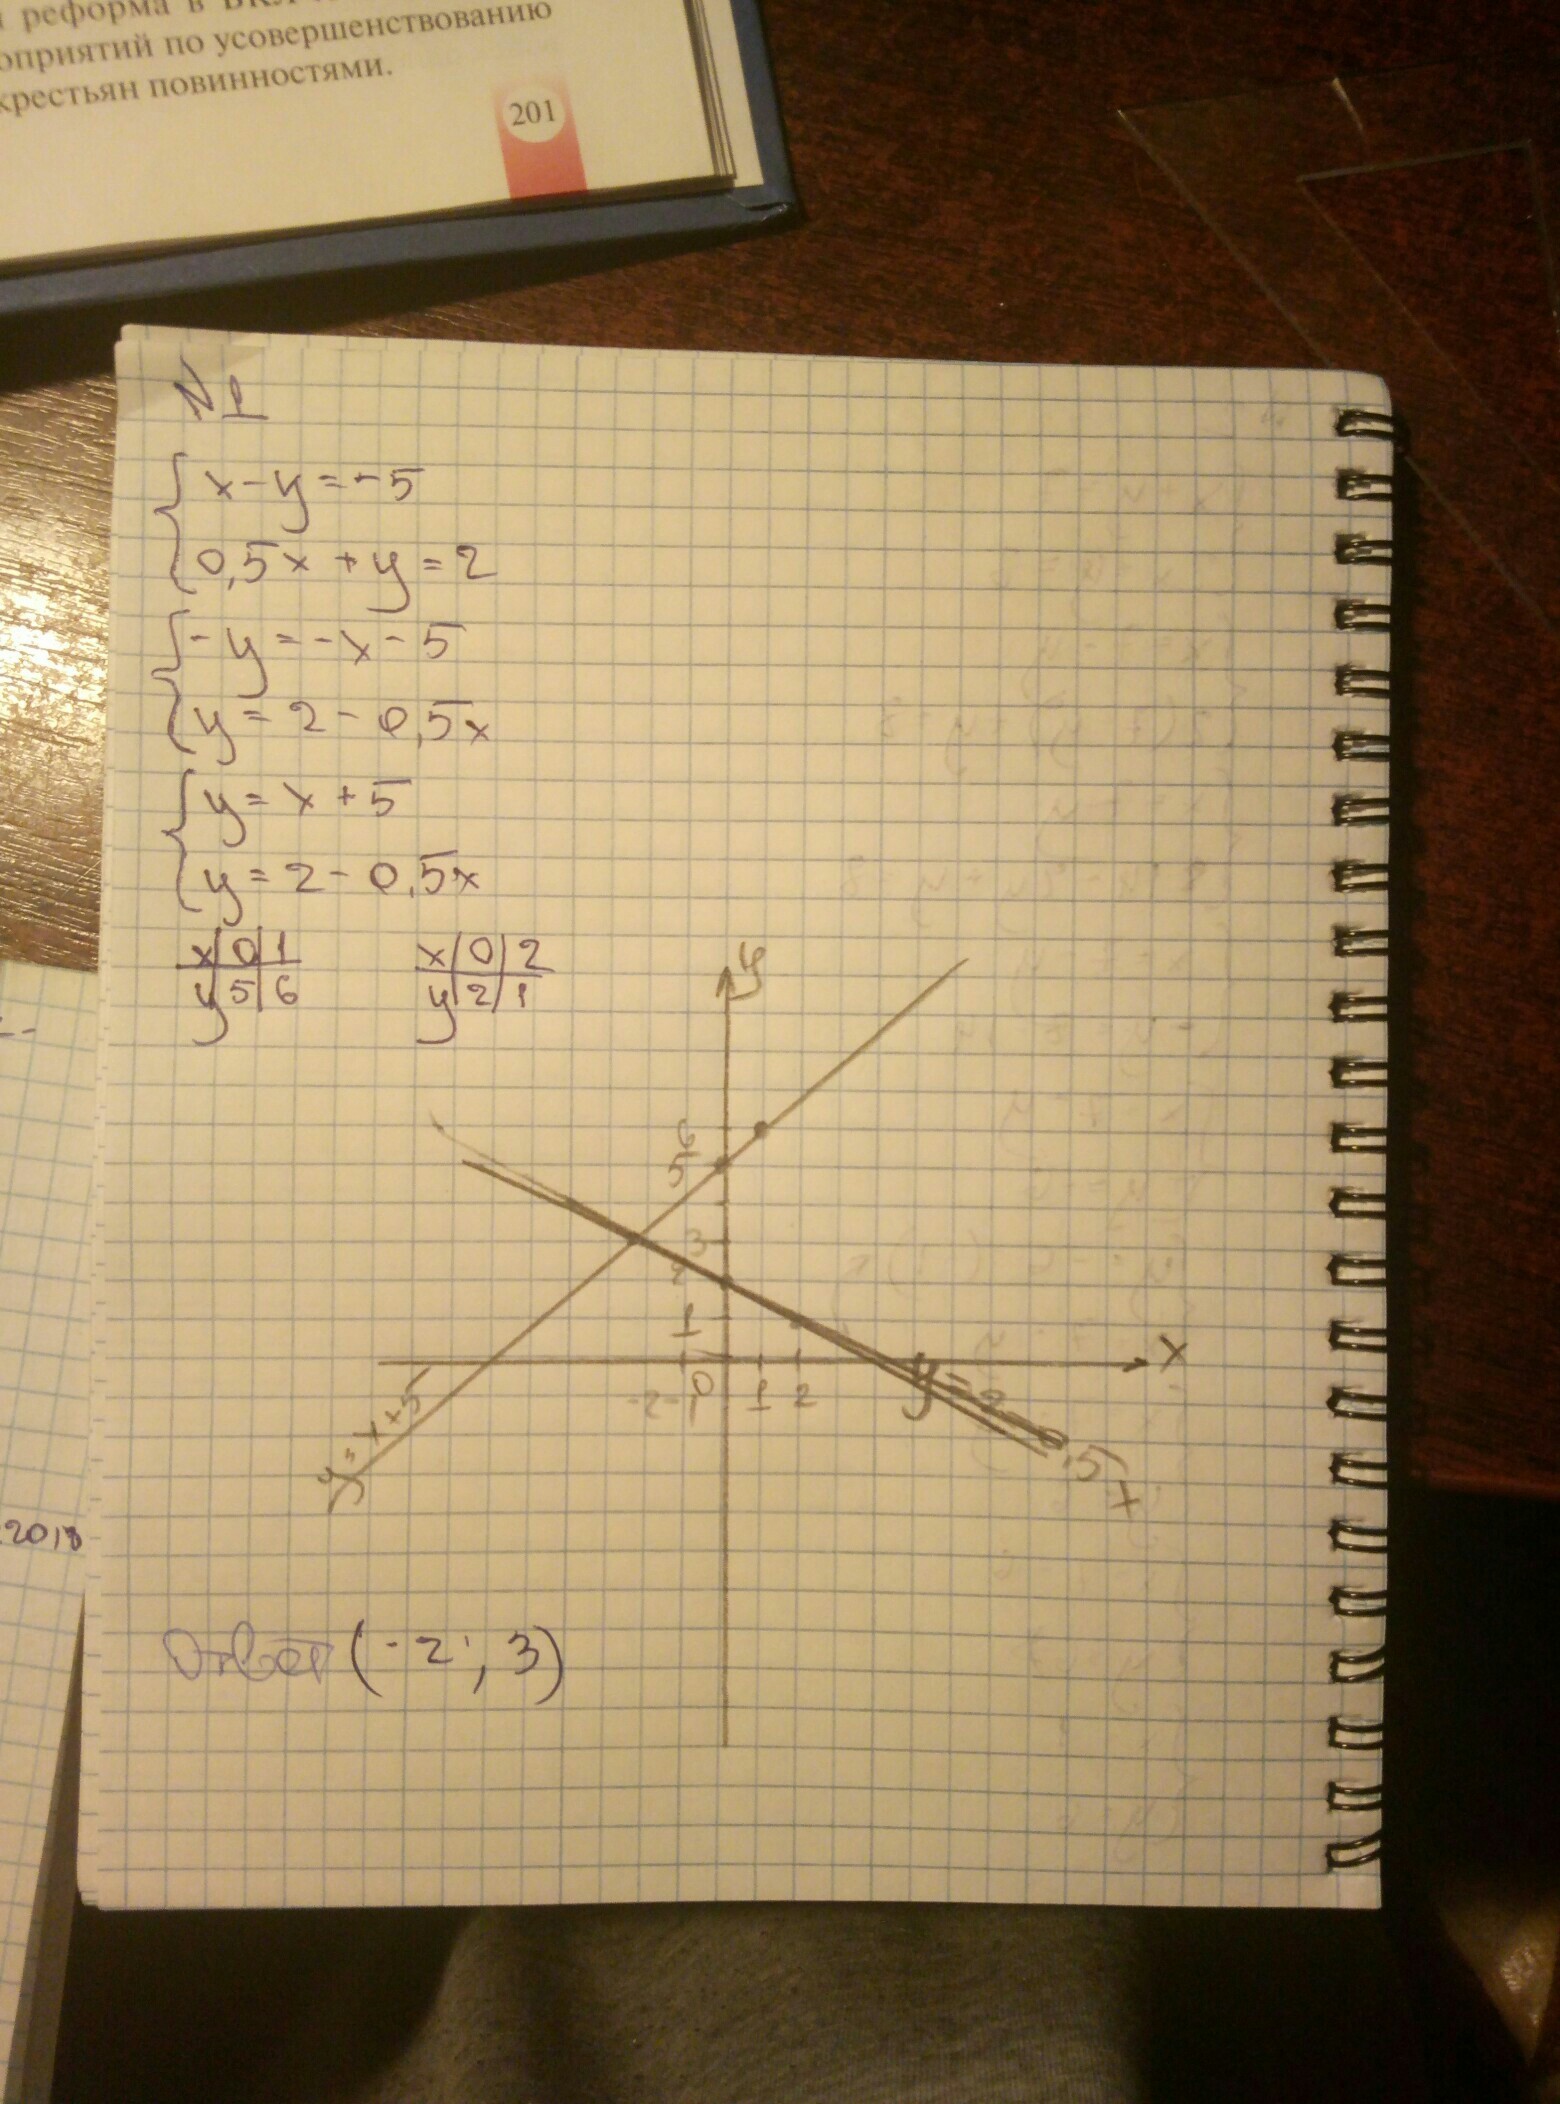 реформа в ВКЛ
оприятий по усовершенствованию
крестьян повинностями.
201
N1
x-y=-5
0,5x+y=2
-y=-x-5
y=2-0,5x
y=x+5
y=2-0,5x
x|0|1 x|0|2
y|5|6 y|2|1
y
6
5
3
2
1
x
-2 -1 0 1 2
y=x+5
y=2-0,5x
2018
Ответ (-2; 3)